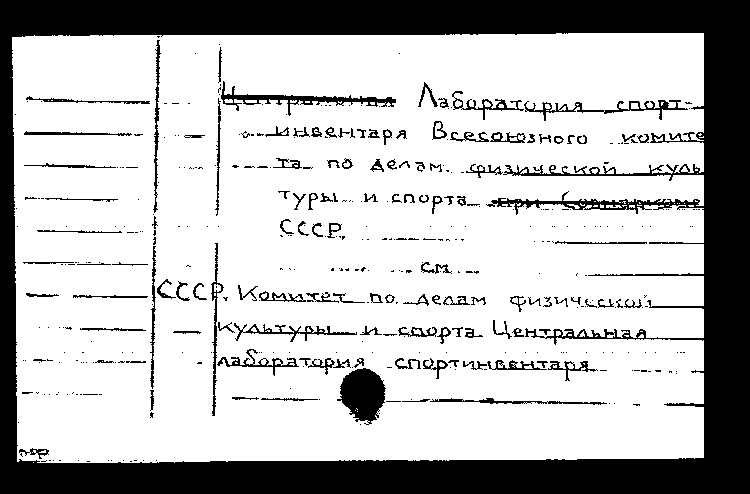 Центральная Лаборатория спорт-
инвентаря Всесоюзного комите
та по делам физической куль
туры и спорта при Совнаркоме
СССР.
см.
СССР. Комитет по делам физической
культуры и спорта. Центральная
лаборатория спортинвентаря